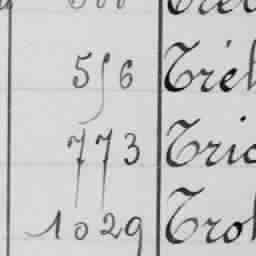 556 Trél
773 Tric
1029 Trol